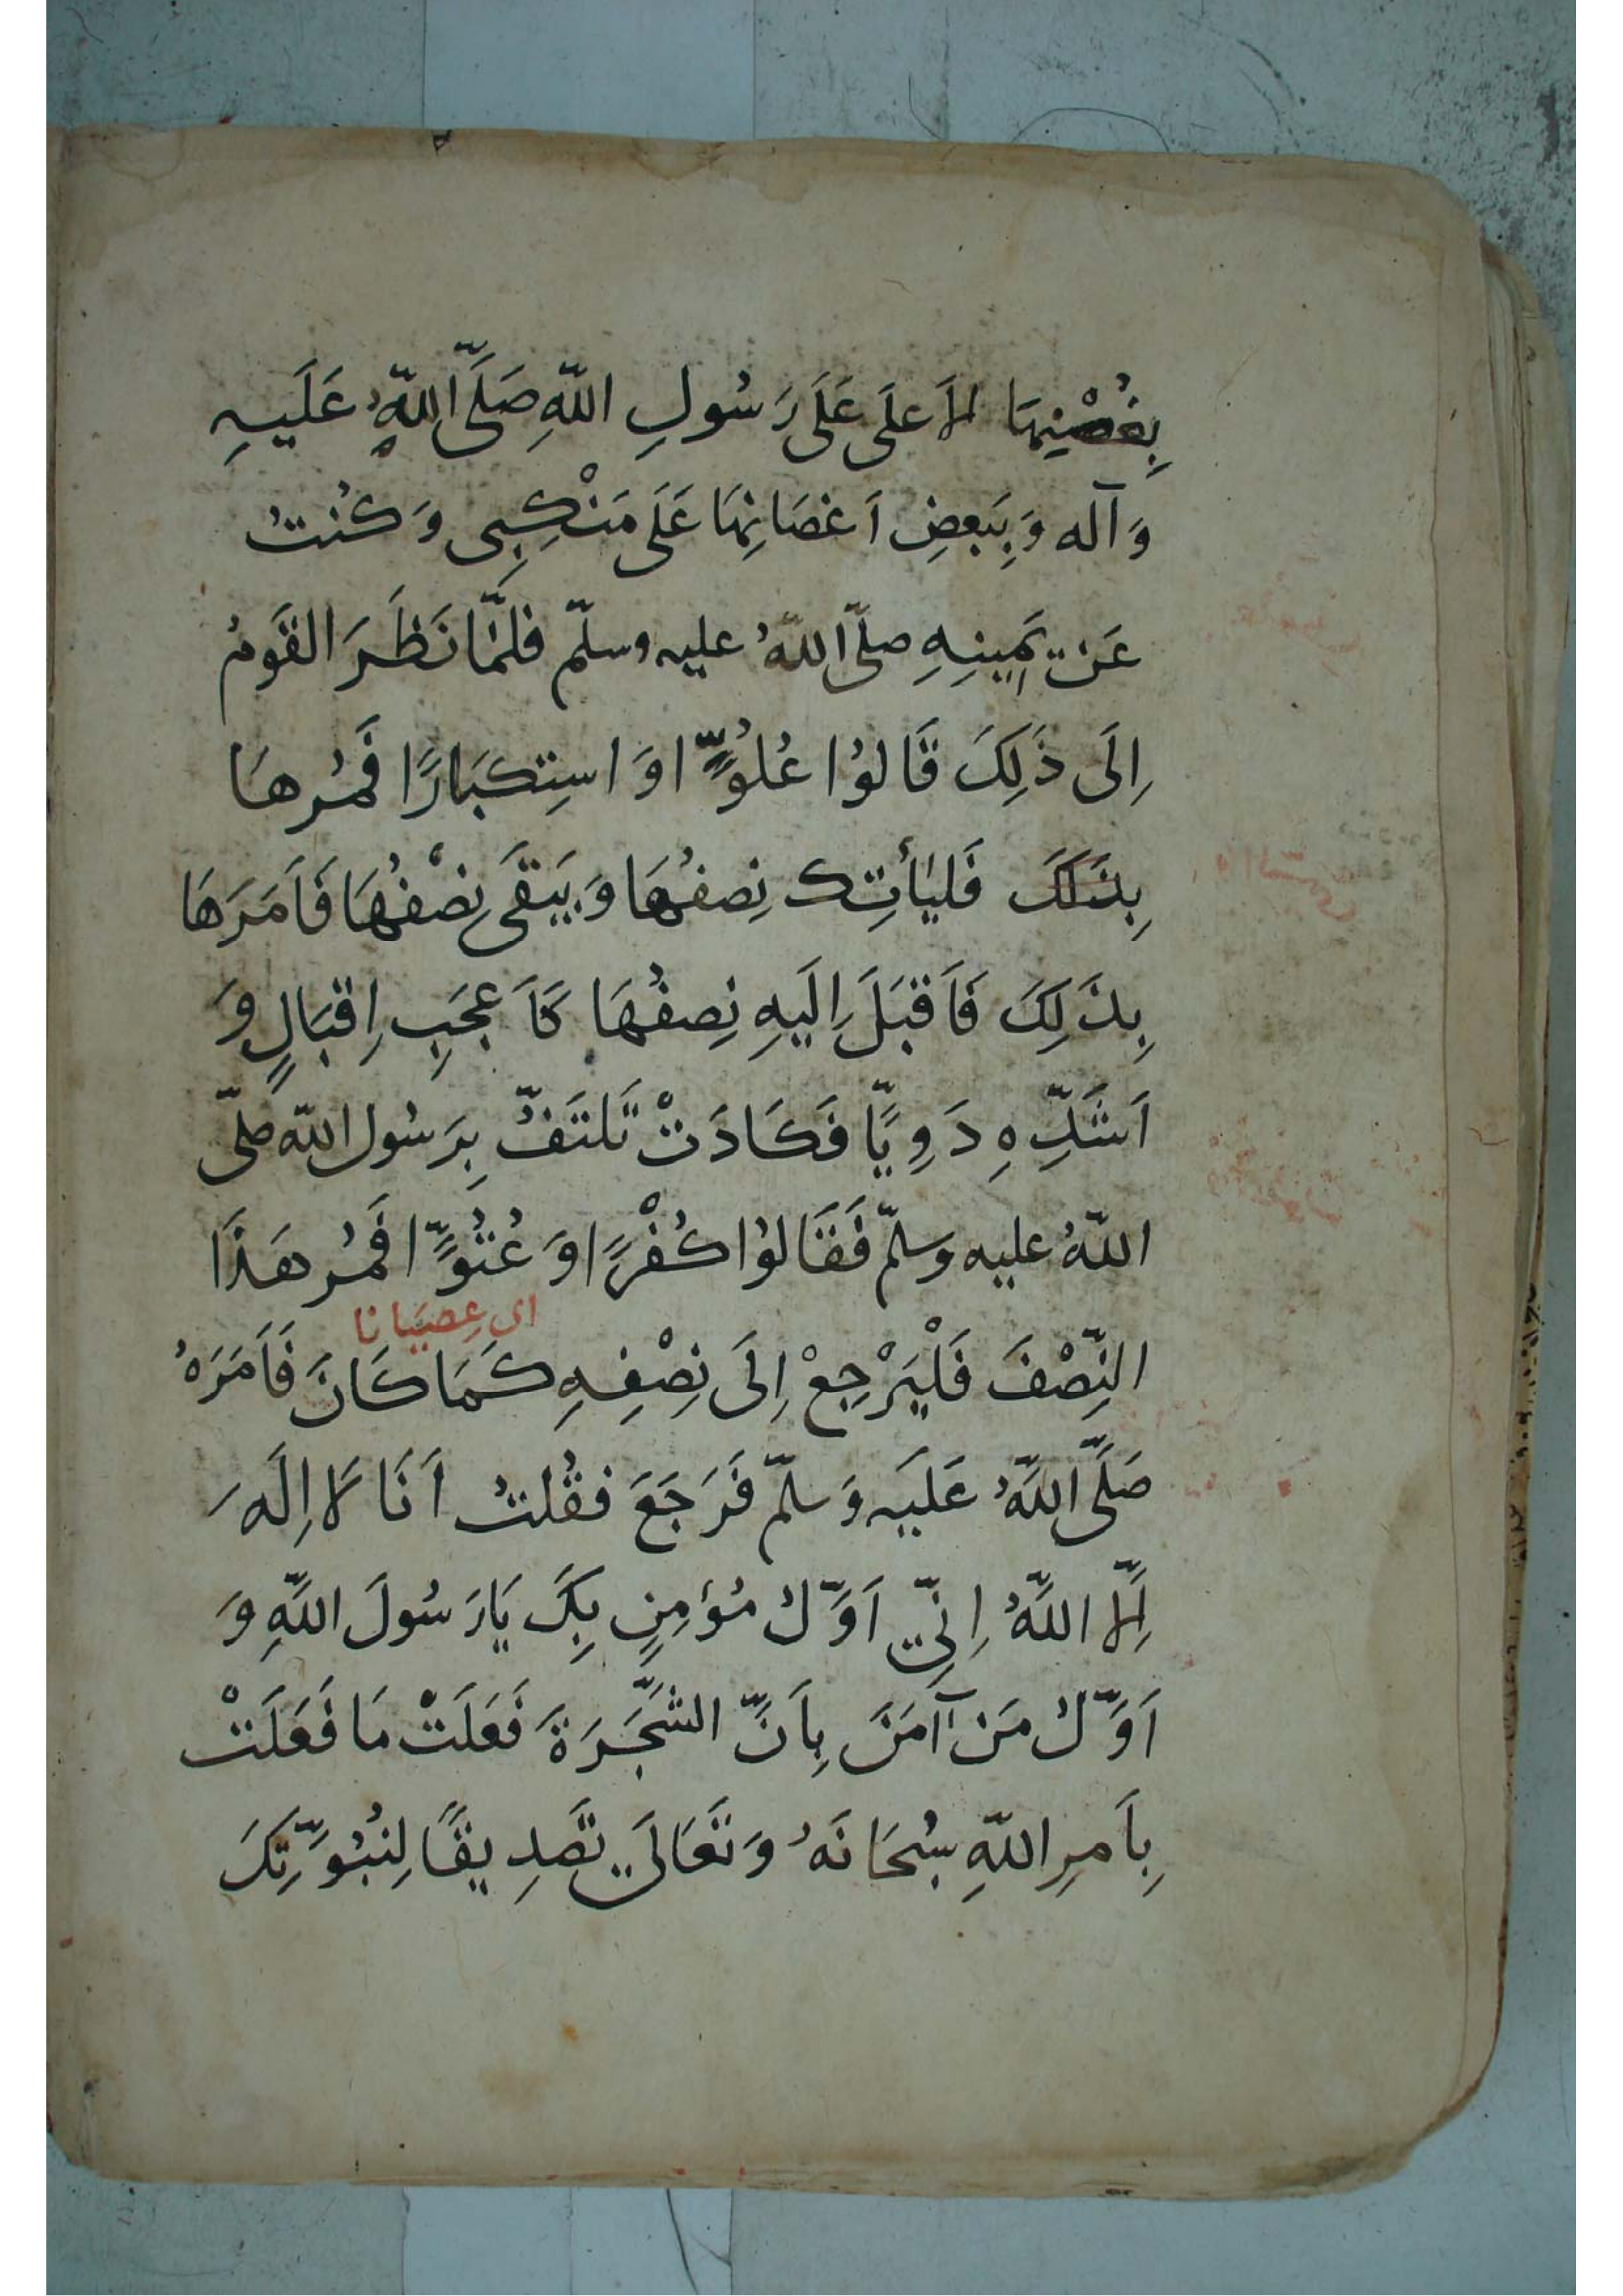 بِغُصْنِهَا الأَعلَى عَلَى رَسُولِ اللّهِ صَلَّى اللّهُ عَلَيهِ
وَآله وَبِبَعضِ اَغصَانِهَا عَلَى مَنْكِبِى وَكُنتُ
عَن يَمِينِهِ صلّى اللّهُ عليه وسلّم فلَمَّا نَظَرَ القَومُ
اِلَى ذَلِكَ قَالوُا عُلُوًّا وَاستِكبَارًا فَمُرهَا
بِذَلكَ فَليَأتِك نِصفُهَا وَيَبَقَى نِصْفُهَا فَاَمَرَهَا
بِذَلِكَ فَاَقبَلَ اِلَيهِ نِصفُهَا كَاَعجَبِ اِقبَالٍ وَ
اَشَدِّهِ دَوِيًّا فَكَادَتْ تَلتَفُّ بِرَسُول اللّه صلّى
اللّهُ عليه وسلّم فَقَالوُا كُفْرًا وَعُتُوًّا فَمُر هَذَا
اى عِصيَانا
النِّصْفَ فَلْيَرْجِعْ اِلَى نِصْفِهِ كَمَا كَانَ فَاَمَرَهُ
صَلَّى اللّهُ عَلَيه وَسلّم فَرَجَعَ فقُلتُ اَنَا لَا اِلَهَ
اِلّا اللّهُ اِنِّى اَوَّلُ مُؤمِنٍ بِكَ يَا رَسُولَ اللّهِ وَ
اَوَّلُ مَن آمَنَ بِاَنَّ الشَّجَرَةَ فَعَلَتْ مَا فَعَلَتْ
بِاَمرِ اللّهِ سُبحَانَهُ وَتَعَالَى تَصدِيقًا لِنُبُوَّتِكَ